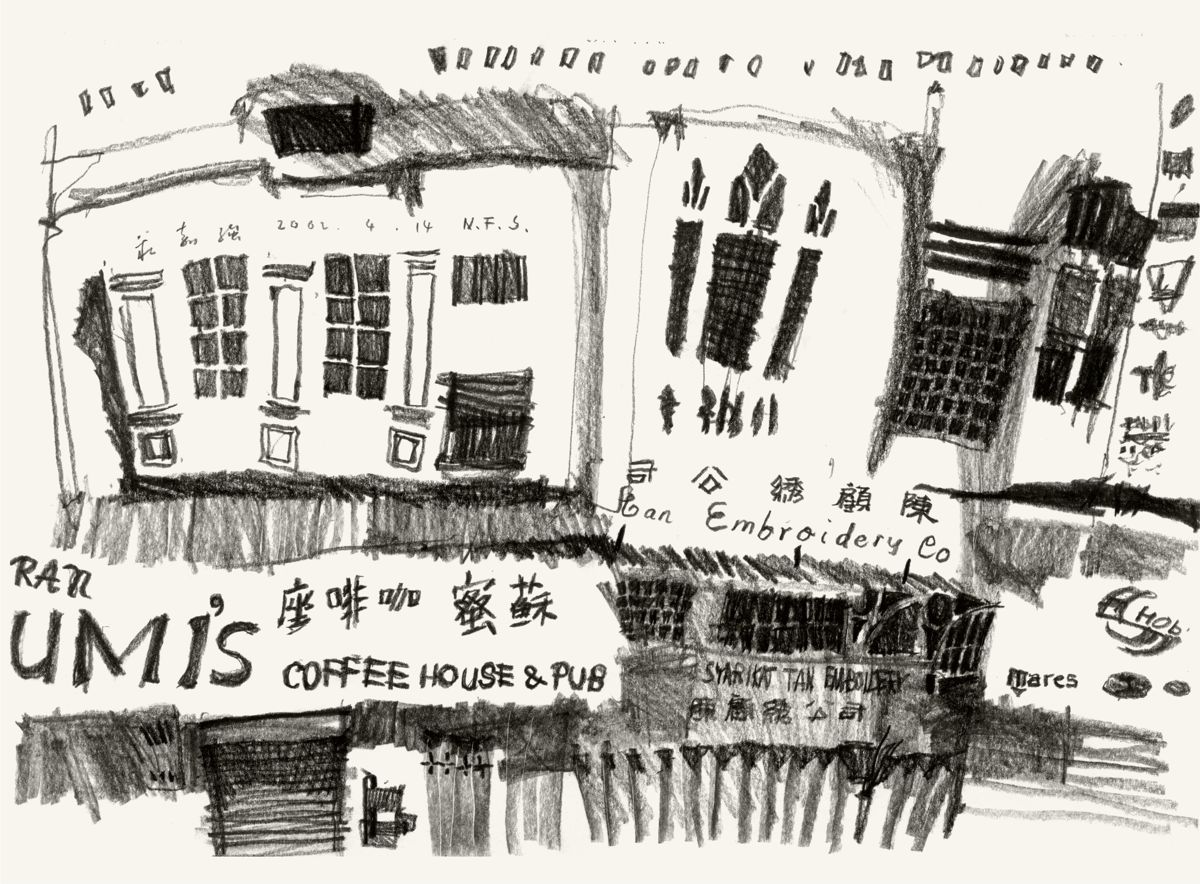 莊嘉強 2002. 4. 14 N.F.S.
司公綉顧陳
Tan Embroidery Co
RAN
UMI's
座啡咖蜜蘇
COFFEE HOUSE & PUB
SYARIKAT TAN EMBOILERY
陳顧綉公司
HOb.
mares